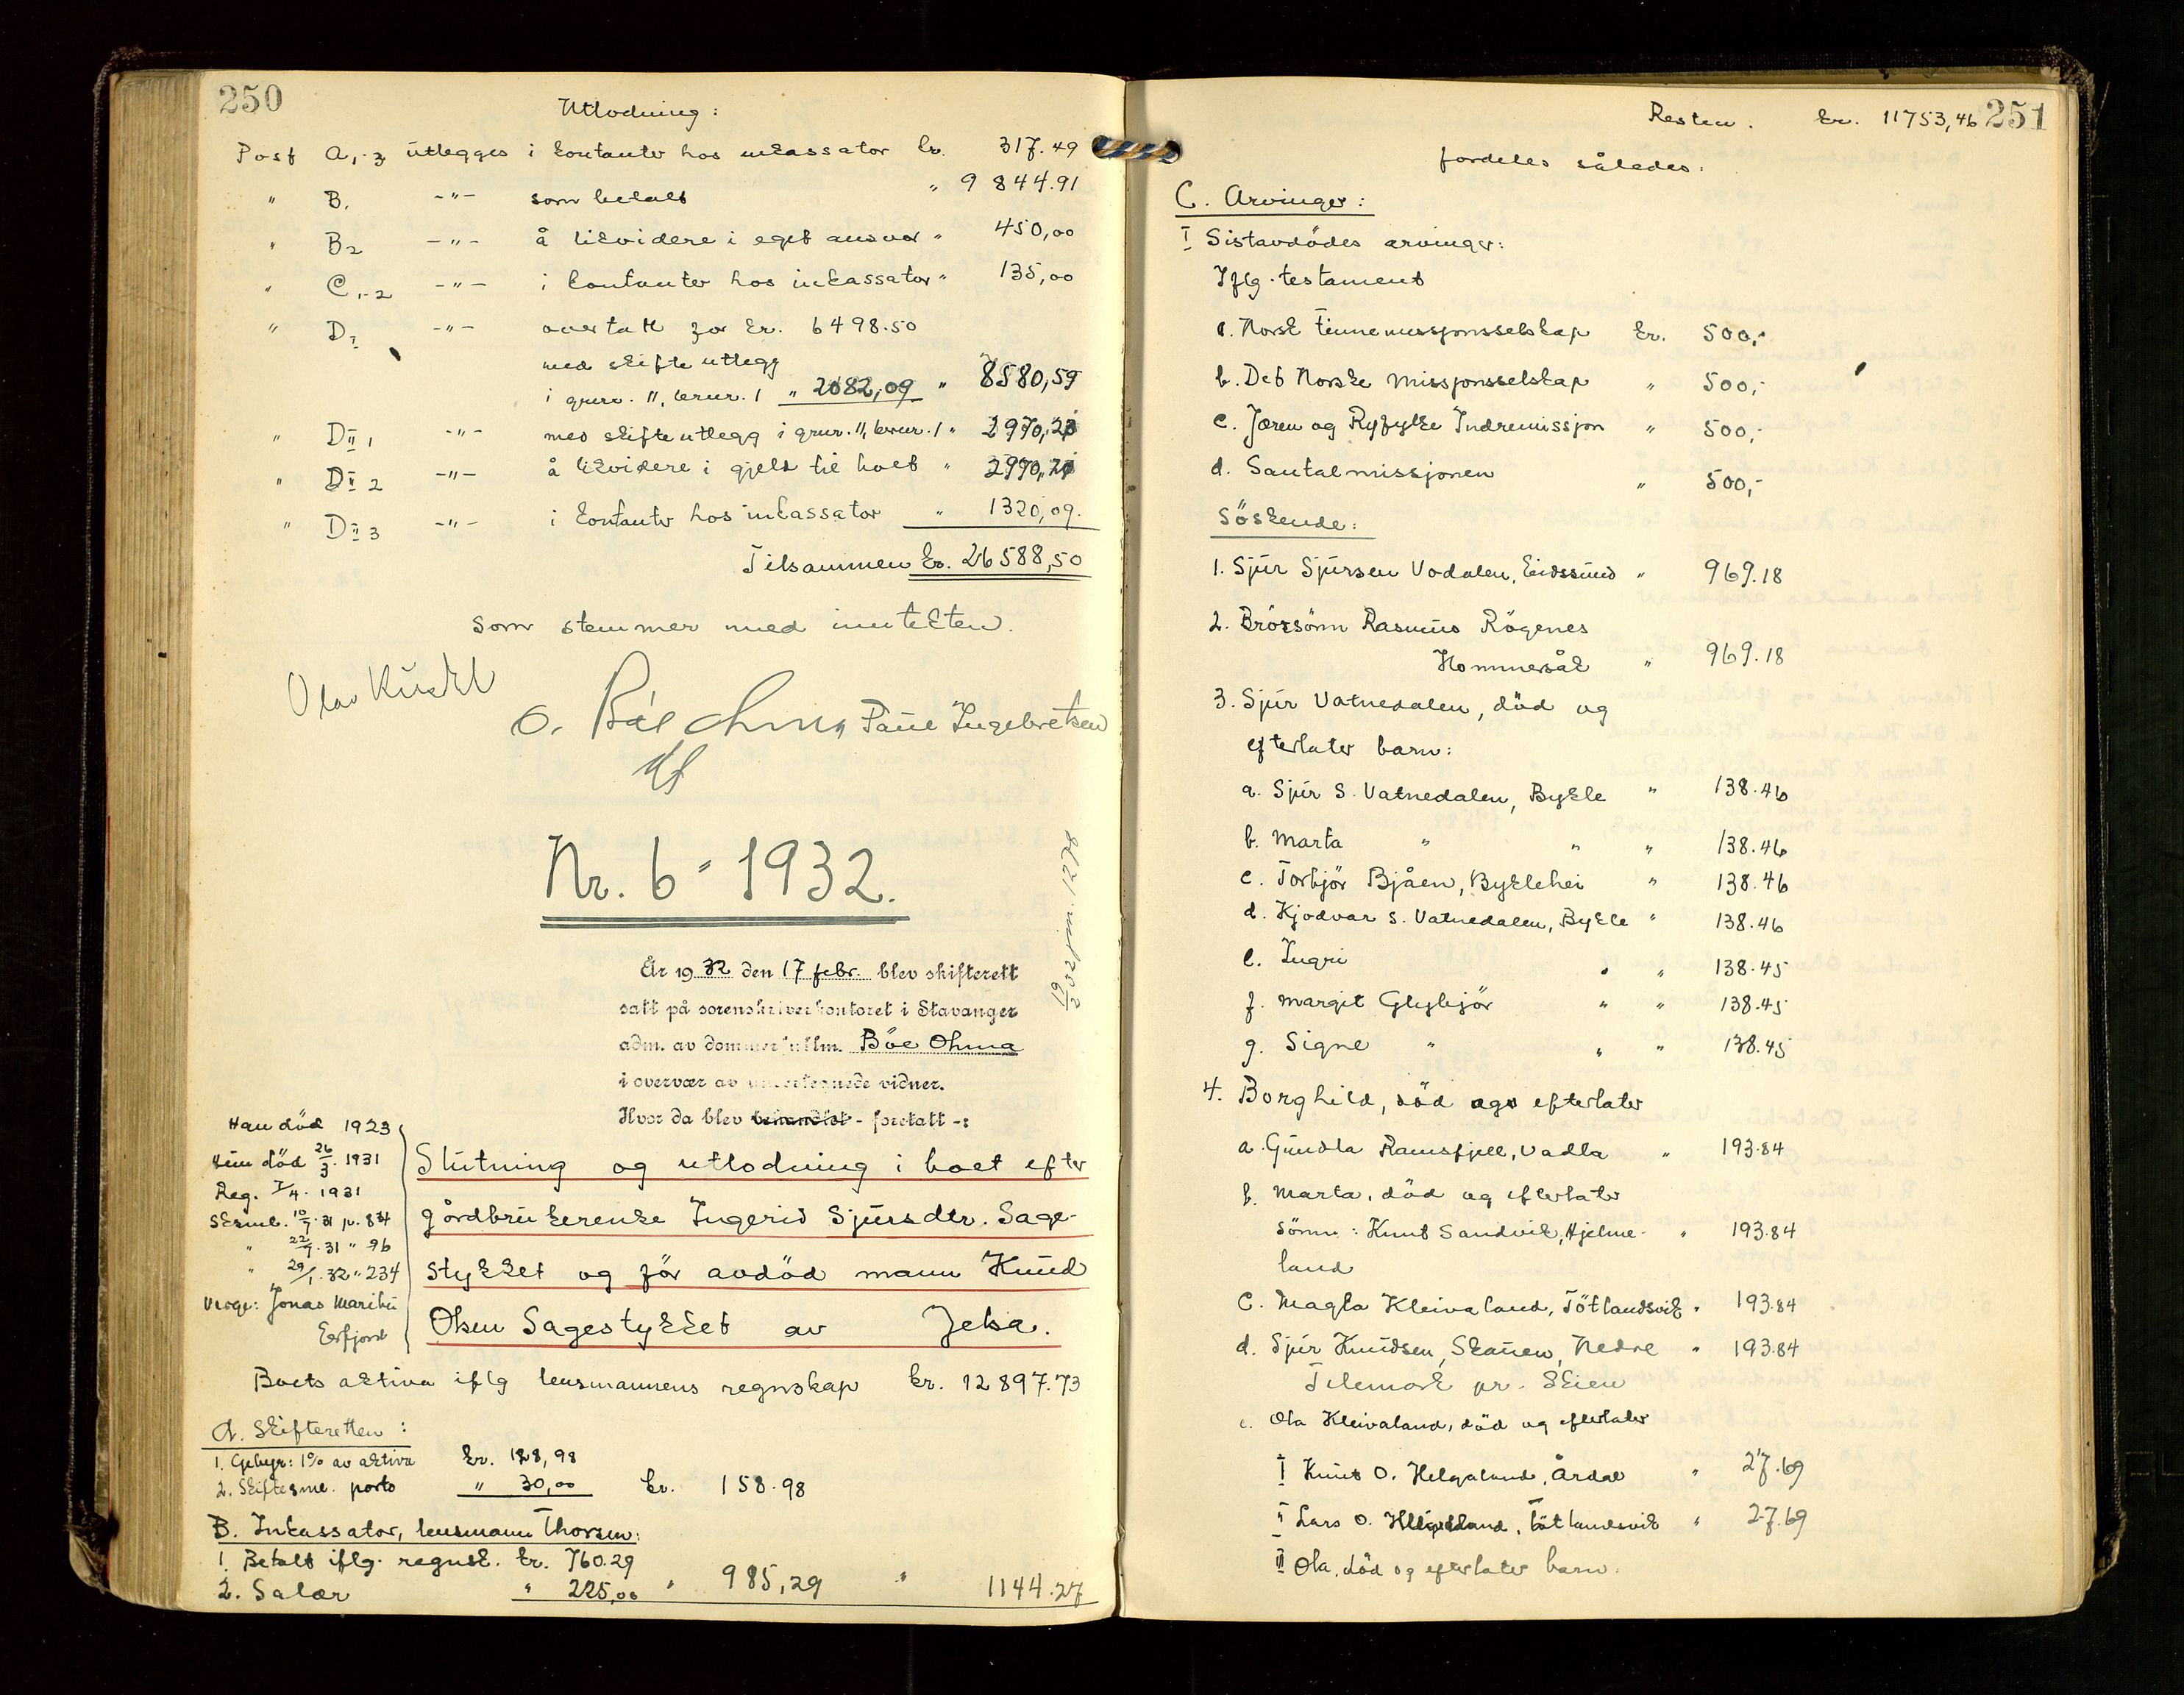 250
Utlodning:
Post A,-3 utlegges i kontanter hos inkassator kr. 317.49
" B, -"- som betalt " 9 844.91
" B2 -"- å likvidere i eget ansvar " 450,00
" C,-2 -"- i kontanter hos inkassator " 135,00
" D, -"- overtatt for kr. 6498.50
med skifteutlegg
i grunr. 11, brnr. 1 " 2082,09 " 8580,59
" DII 1 -"- med skifteutlegg i grnr. 11, brnr. 1 " 2970,21
" DII 2 -"- å likvidere i gjeld til boet " 2970,21
" DII 3 -"- i kontanter hos inkassator " 1320,09.
Tilsammen kr. 26588,50
som stemmer med inntekten.
Olav
O. Böe Ohma Paul Ingebretsen
Nr. 6 - 1932.
19/2 32 jnr. 1278
År 1932 den 17 febr. blev skifterett
satt på sorenskriverkontoret i Stavanger
adm. av dommerfullm. Böe Ohma
i overvær av undertegnede vidner.
Hvor da blev behandlet - foretatt -:
Han död 1923
Hun död 26/3. 1931
Reg. 7/4. 1931
Sksml. 10/7. 31 p. 834
" 22/9. 31 " 96
" 29/1. 32 " 234
Verge: Jonas Maribu
Erfjord
Slutning og utlodning i boet efter
gårdbrukerenke Ingerid Sjursdtr. Sage-
stykket og för avdöd mann Knud
Olsen Sagestykket av Jelsa.
Boets aktiva iflg lensmannens regnskap kr. 12 897.73
A. Skifteretten:
1. Gebyr: 1% av aktiva kr. 128,98
2. Skiftesml. porto " 30,00 kr. 158.98
B. Inkassator, lensmann Thorsen:
1. Betalt iflg. regnsk. kr. 760.29
2. Salær " 225,00 " 985,29 " 1144.27
251
Resten. kr. 11753,46
fordeles således:
C. Arvinger:
I Sistavdödes arvinger:
Iflg. testament
a. Norsk Finnemissjonsselskap kr. 500,-
b. Det Norske Missjonsselskap " 500,-
c. Jæren og Ryfylke Indremissjon " 500,-
d. Santalmissjonen " 500,-
Söskende:
1. Sjur Sjursen Vodalen, Eidssund " 969.18
2. Brorsönn Rasmus Rögenes
Hommersåk " 969.18
3. Sjur Vatnedalen, död og
efterlater barn:
a. Sjur S. Vatnedalen, Bykle " 138.46
b. Marta " " " 138.46
c. Torbjör Bjåen, Byklehei " 138.46
d. Kjodvar S. Vatnedalen, Bykle " 138.46
e. Ingri " " 138.45
f. Margit Glybjör " " 138.45
g. Signe " " " 138.45
4. Borghild, död og efterlater
a. Gundla Ramsfjell, Vadla " 193.84
b. Marta, död og efterlater
sönn: Knut Sandvik, Hjelme- " 193.84
land
c. Magla Kleivaland, Töttlandsvik " 193.84
d. Sjur Knudsen, Skauen, Nedre " 193.84
Telemork pr. Skien
e. Ola Kleivaland, död og efterlater
I Knut O. Helgaland, Årdal " 27.69
II Lars O. Helgaland, Töttlandsvik " 27.69
III Ola, död og efterlater barn: